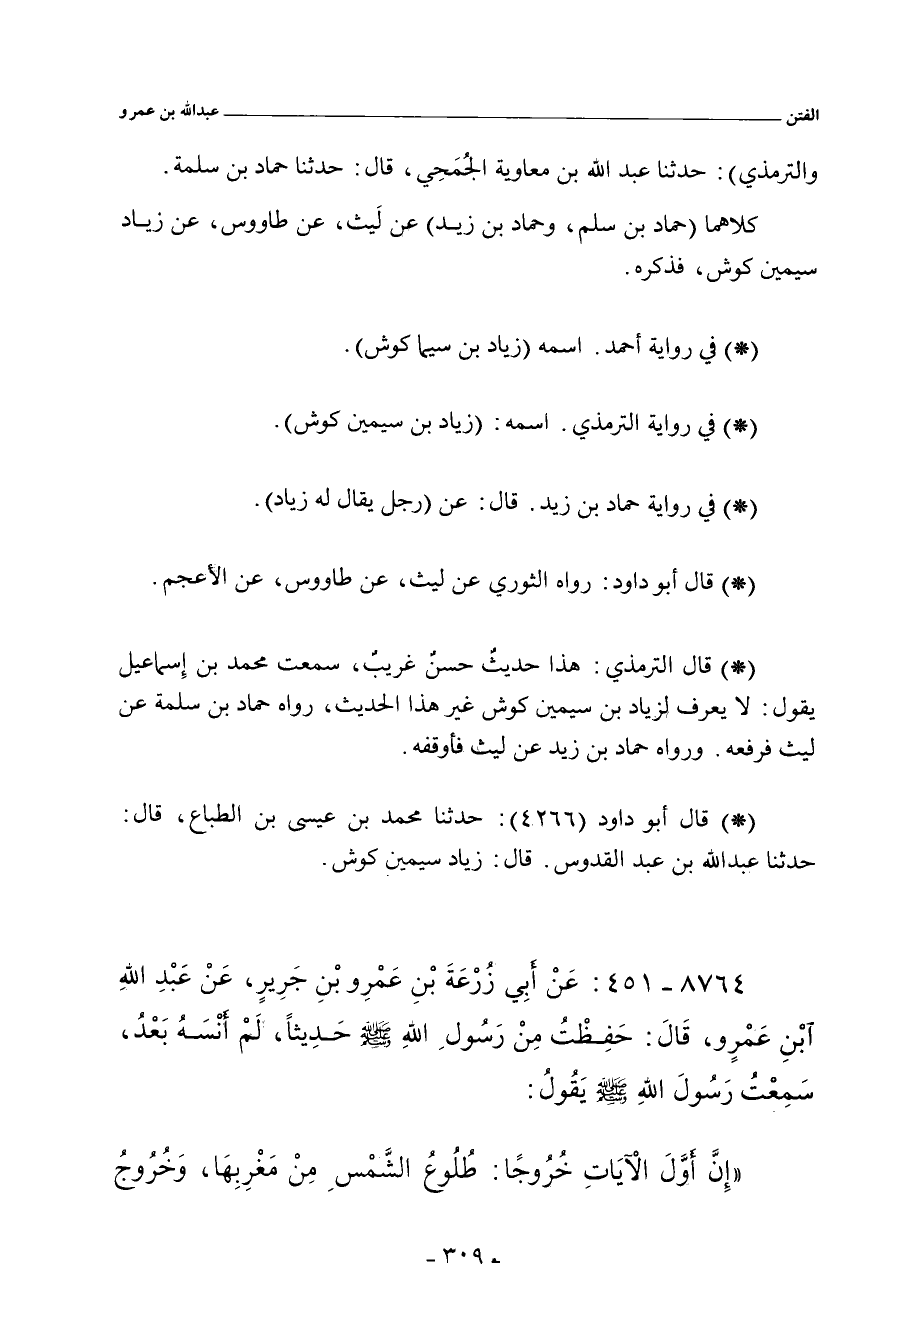 الفتن عبدالله بن عمرو
والترمذي): حدثنا عبد الله بن معاوية الجُمَحِي، قال: حدثنا حماد بن سلمة.
كلاهما (حماد بن سلم، وحماد بن زيد) عن لَيث، عن طاووس، عن زياد
سيمين كوش، فذكره.
(*) في رواية أحمد. اسمه (زياد بن سيما كوش).
(*) في رواية الترمذي. اسمه: (زياد بن سيمين كوش).
(*) في رواية حماد بن زيد. قال: عن (رجل يقال له زياد).
(*) قال أبو داود: رواه الثوري عن ليث، عن طاووس، عن الأعجم.
(*) قال الترمذي: هذا حديثٌ حسنٌ غريبٌ، سمعت محمد بن إسماعيل
يقول: لا يعرف لزياد بن سيمين كوش غير هذا الحديث، رواه حماد بن سلمة عن
ليث فرفعه. ورواه حماد بن زيد عن ليث فأوقفه.
(*) قال أبو داود (٤٢٦٦): حدثنا محمد بن عيسى بن الطباع، قال:
حدثنا عبدالله بن عبد القدوس. قال: زياد سيمين كوش.
٨٧٦٤ - ٤٥١: عَنْ أَبِي زُرْعَةَ بْنِ عَمْرِو بْنِ جَرِيرٍ، عَنْ عَبْدِ اللهِ
آبْنِ عَمْرٍو، قَالَ: حَفِظْتُ مِنْ رَسُولِ اللهِ ﷺ حَدِيثاً، لَمْ أَنْسَهُ بَعْدُ،
سَمِعْتُ رَسُولَ اللهِ ﷺ يَقُولُ:
«إِنَّ أَوَّلَ الْآيَاتِ خُرُوجًا: طُلُوعُ الشَّمْسِ مِنْ مَغْرِبِهَا، وَخُرُوجُ
- ٣٠٩ -